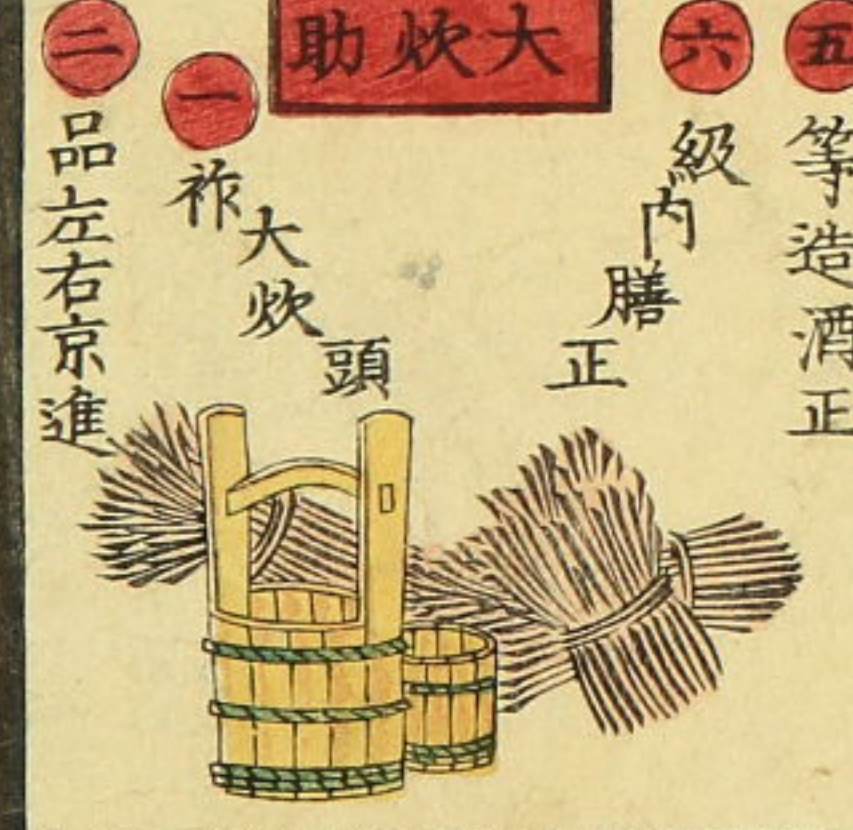 大炊助
五
等造酒正
六
級内膳正
一
祚大炊頭
二
品左右京進